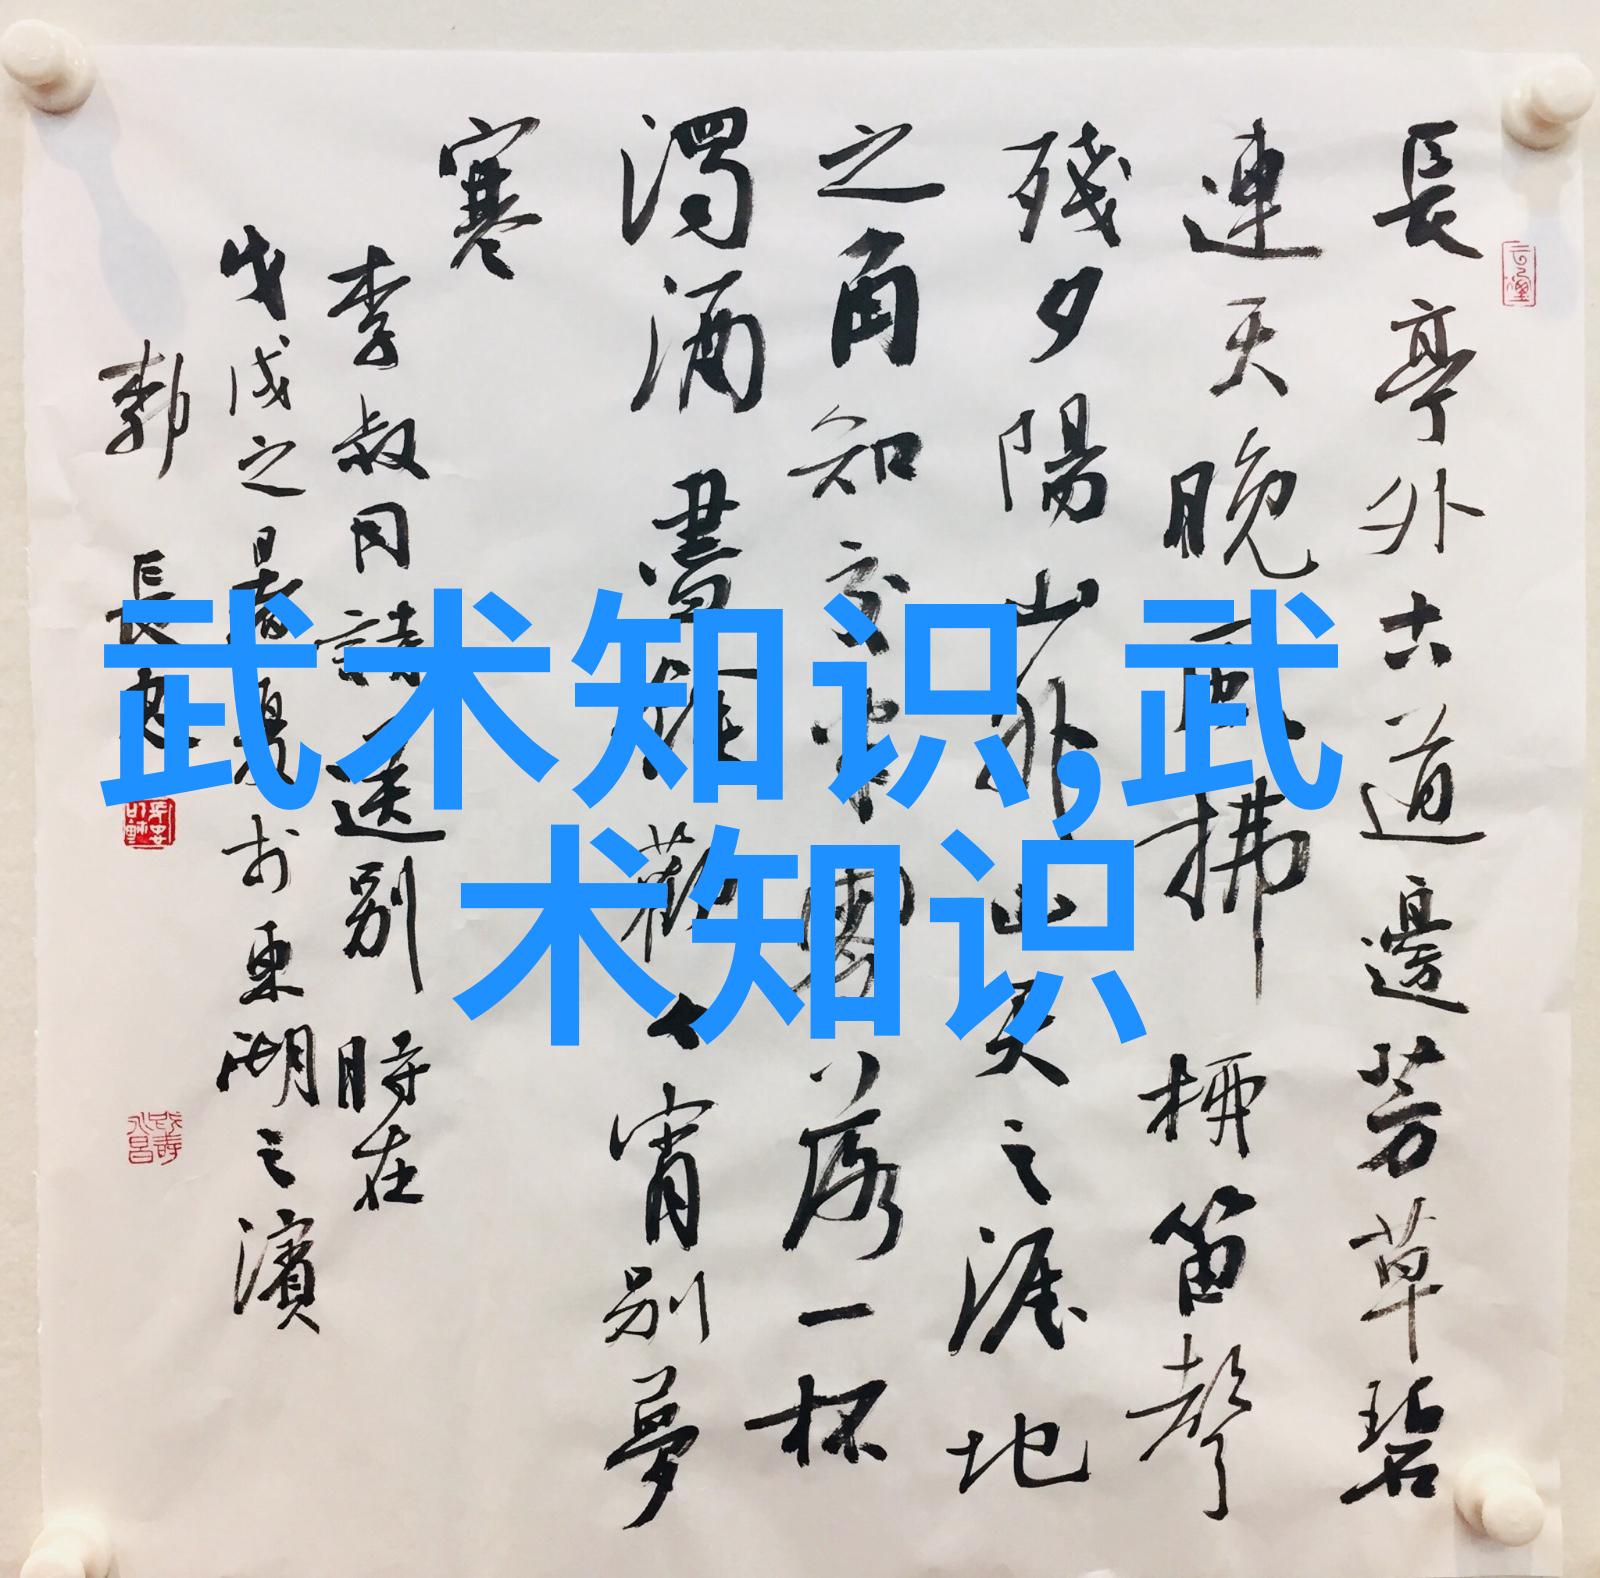 長亭外古道邊芳草碧
連天晚風拂柳笛聲
殘夕陽山外山天之涯地
之角知交半零落一杯
濁酒盡餘歡今宵別夢
寒
李叔同詩送別 時在
戊戌之暑夏於東湖之濱
長忠
武术知识,武
术知识